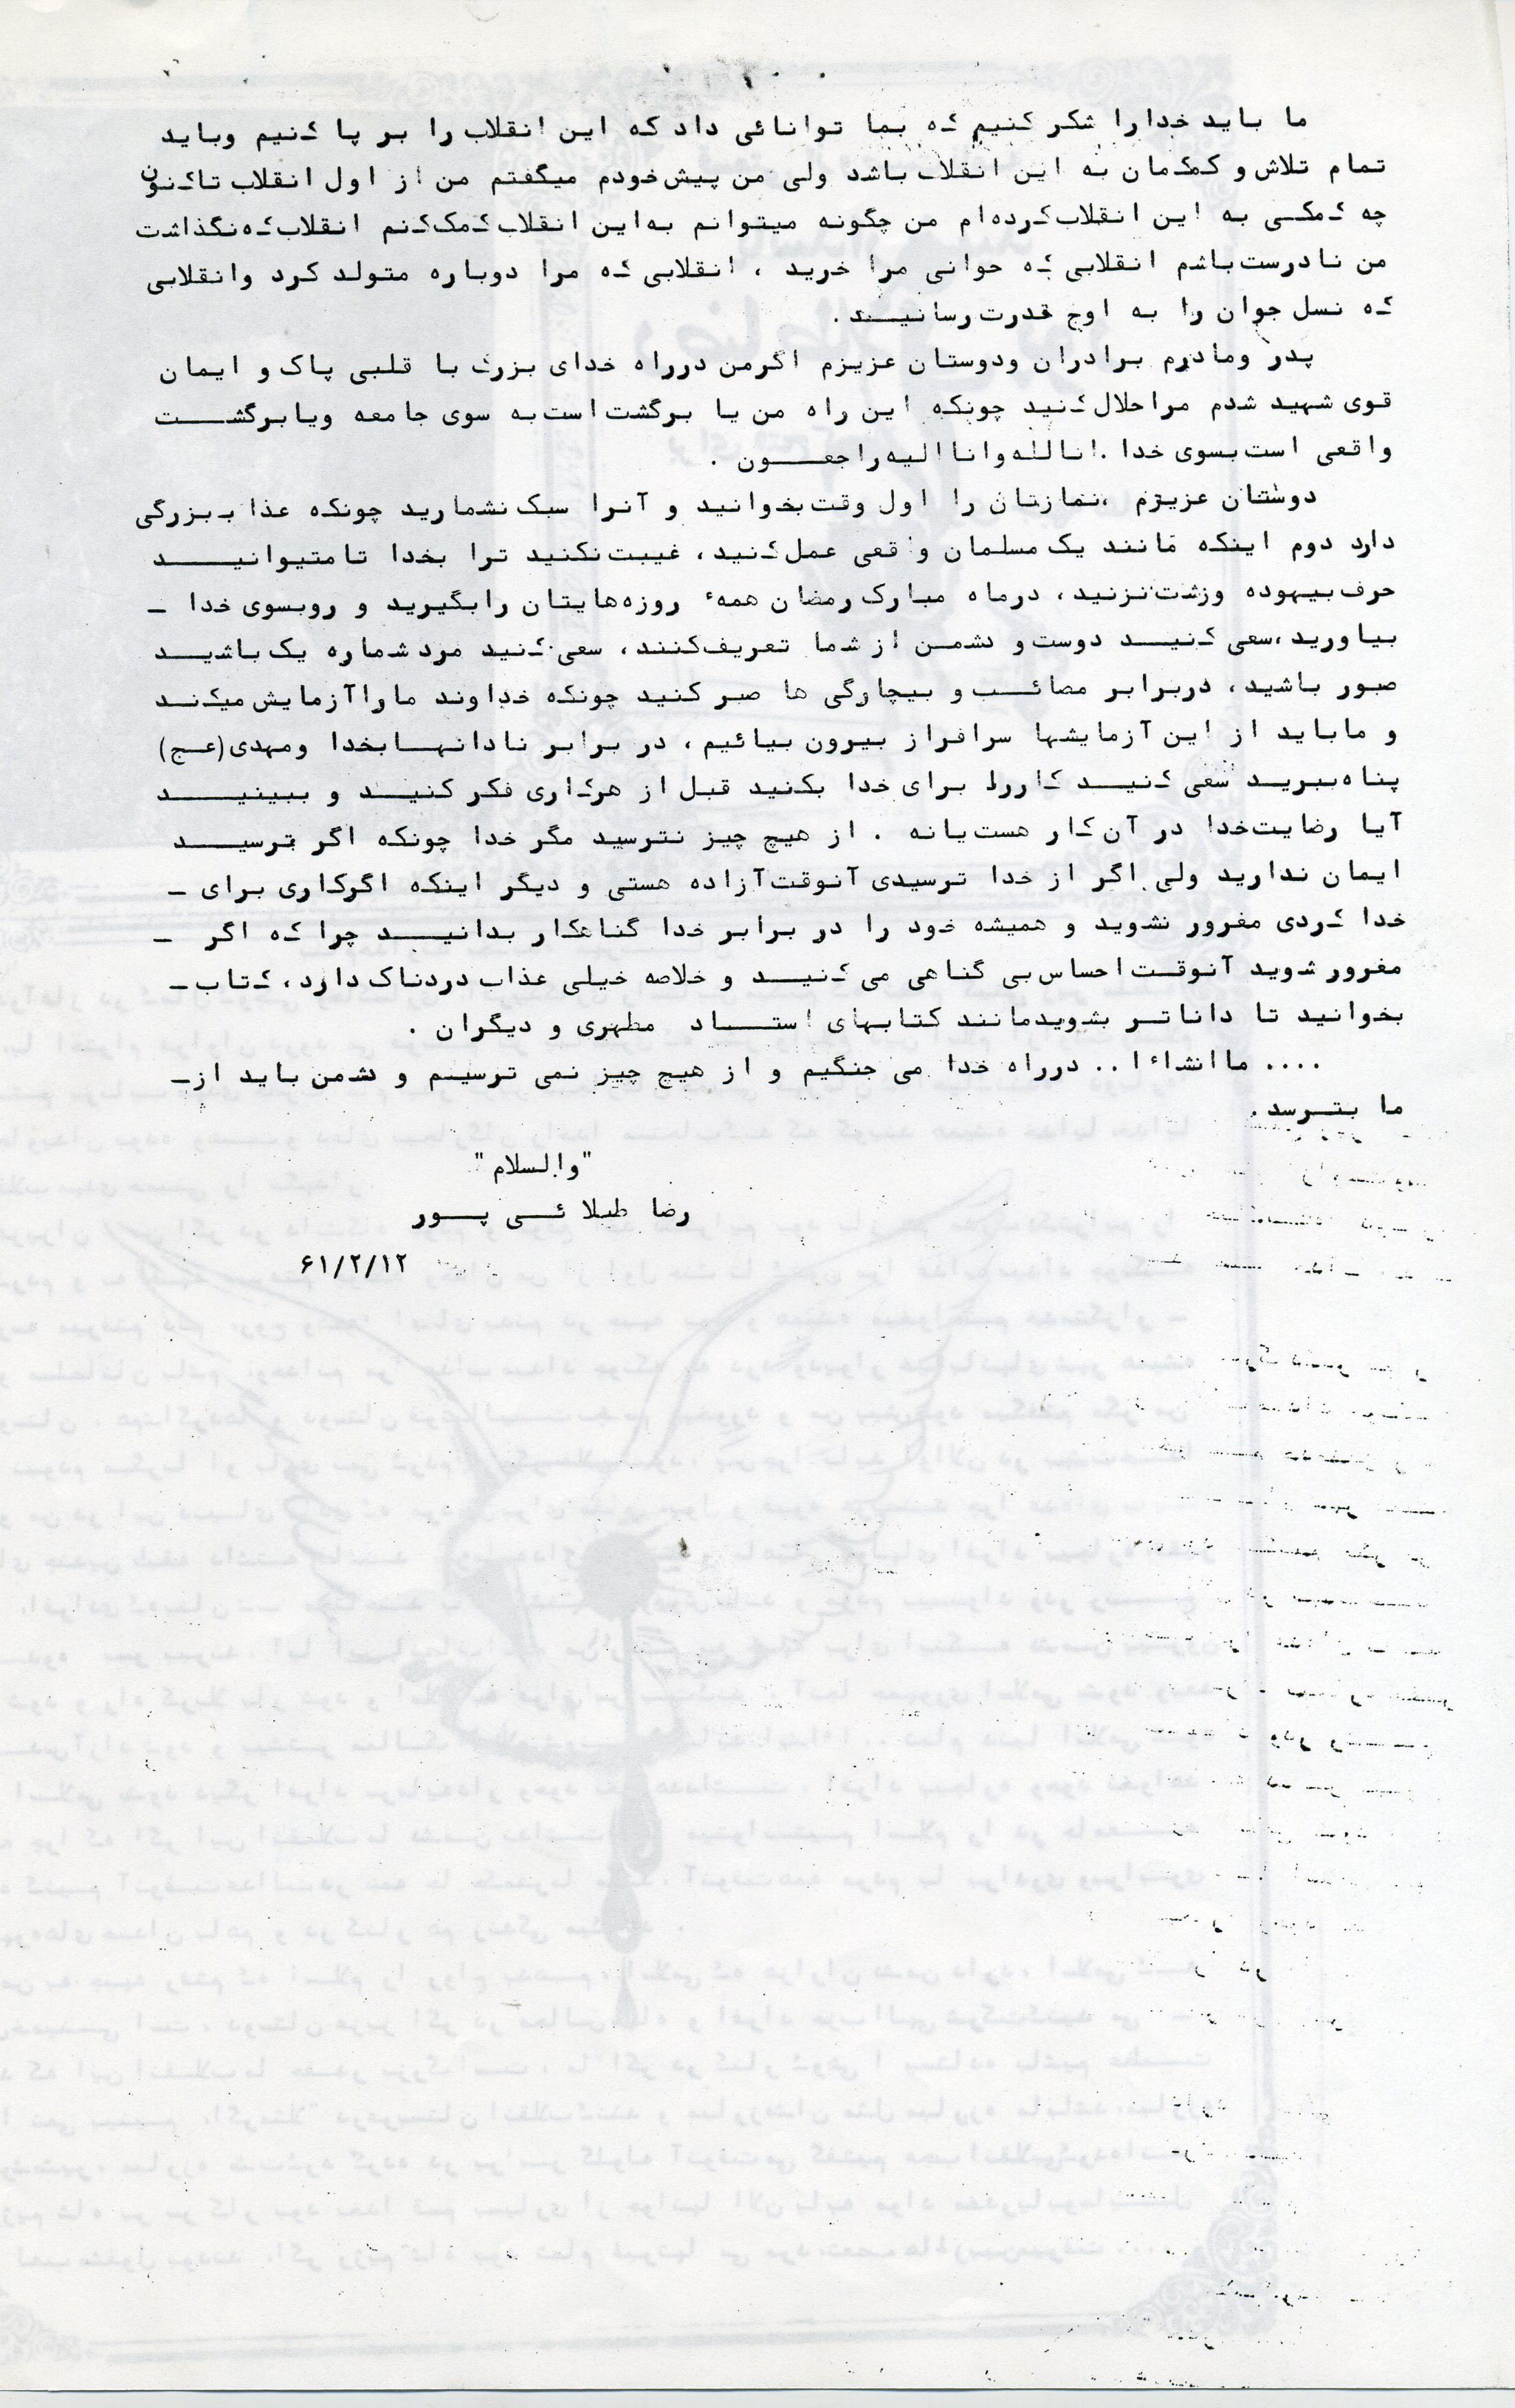 ما باید خدارا شکر کنیم که بما توانائی داد که این انقلاب را بر پا کنیم وباید
تمام تلاش و کمکمان به این انقلاب باشد ولی من پیش خودم میگفتم من از اول انقلاب تاکنون
چه کمکی به این انقلاب کرده‌ام من چگونه میتوانم به‌این انقلاب کمک کنم انقلاب که نگذاشت
من نادرست باشم انقلابی که جوانی مرا خرید ، انقلابی که مرا دوباره متولد کرد وانقلابی
که نسل جوان را به اوج قدرت رسانید .
پدر ومادرم برادران ودوستان عزیزم اگرمن درراه خدای بزرگ با قلبی پاک و ایمان
قوی شهید شدم مراحلال کنید چونکه این راه من یا برگشت است به سوی جامعه ویابرگشت
واقعی است بسوی خدا .انالله وانا الیه راجعون .
دوستان عزیزم ،نمازتان را اول وقت بخوانید و آنرا سبک نشمارید چونکه عذاب بزرگی
دارد دوم اینکه مانند یک مسلمان واقعی عمل کنید، غیبت نکنید ترا بخدا تامتیوانید
حرف بیهوده وزشت نزنید، درماه مبارک رمضان همهء روزه‌هایتان رابگیرید و روبسوی خدا -
بیاورید،سعی کنید دوست و دشمن از شما تعریف کنند، سعی کنید مرد شماره یک باشید
صبور باشید، دربرابر مصائب و بیچارگی ها صبر کنید چونکه خداوند مارا آزمایش میکند
و ماباید از این آزمایشها سرافراز بیرون بیائیم، در برابر نادانها بخدا ومهدی(عج)
پناه ببرید سعی کنید کاررا برای خدا بکنید قبل از هرکاری فکر کنید و ببینید
آیا رضایت خدا در آن کار هست یانه . از هیچ چیز نترسید مگر خدا چونکه اگر ترسید
ایمان ندارید ولی اگر از خدا ترسیدی آنوقت آزاده هستی و دیگر اینکه اگرکاری برای -
خدا کردی مغرور نشوید و همیشه خود را در برابر خدا گناهکار بدانید چرا که اگر -
مغرور شوید آنوقت احساس بی گناهی می کنید و خلاصه خیلی عذاب دردناک دارد، کتاب -
بخوانید تا داناتر بشوید مانند کتابهای استاد مطهری و دیگران .
.... ما انشاءا.. درراه خدا می جنگیم و از هیچ چیز نمی ترسیم و دشمن باید از-
ما بترسد.
"والسلام"
رضا طلائی پور
۶۱/۲/۱۲